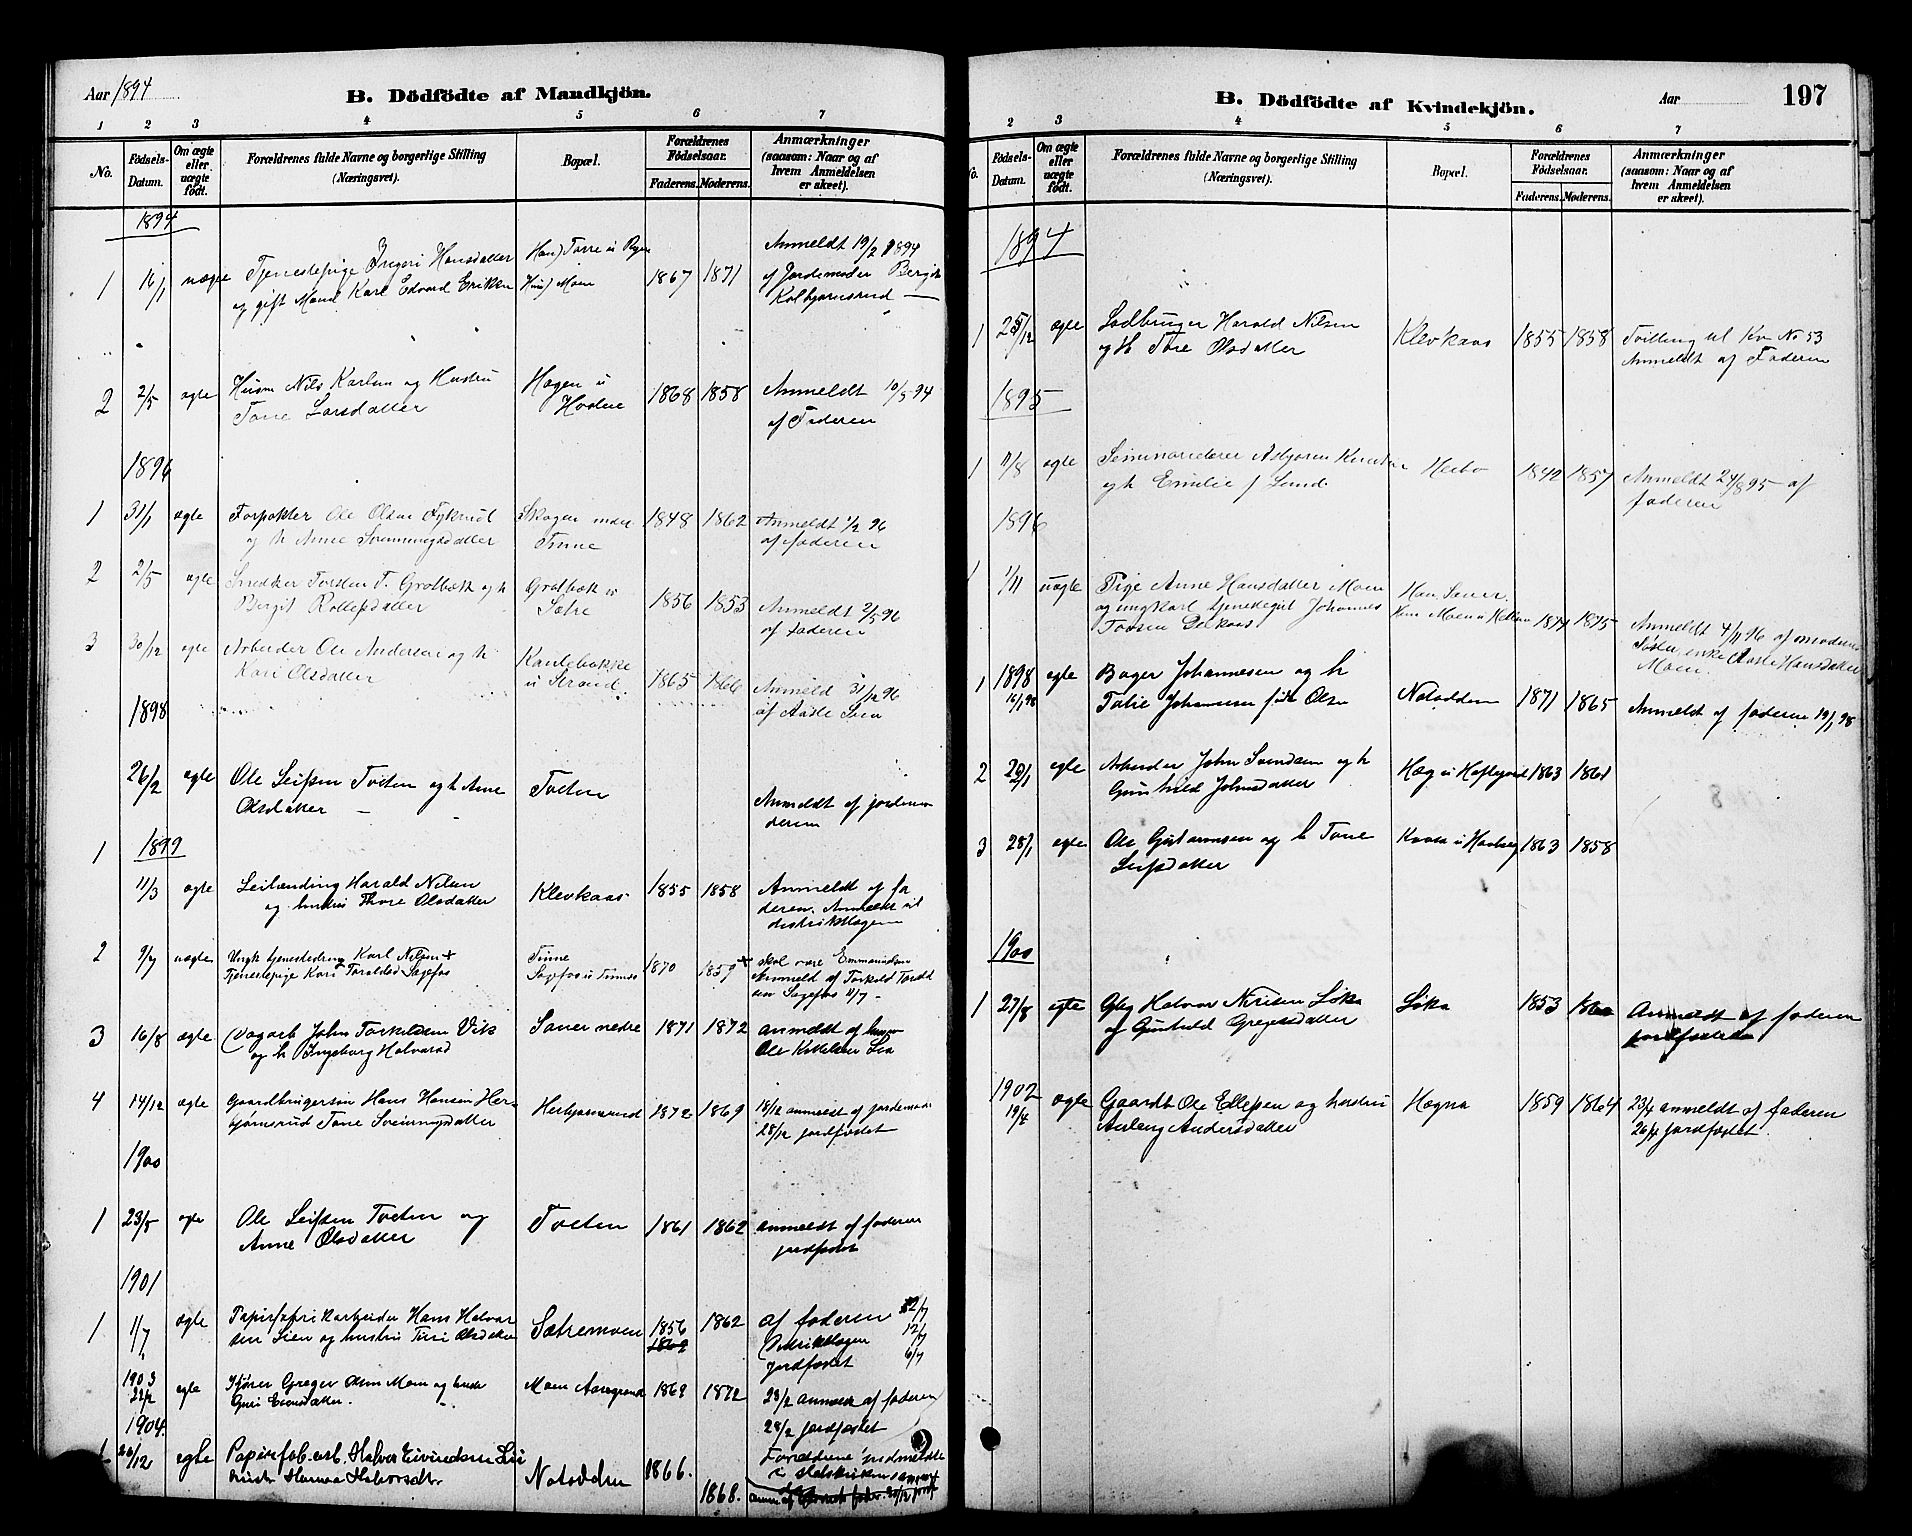 Aar 1894
B. Dödfödte af Mandkjön.
1 2 3 4 5 6 7
No.
Födsels-Datum.
Om ægte eller uægte födt.
Forældrenes fulde Navne og borgerlige Stilling (Næringsvei).
Bopæl.
Forældrenes Födselsaar.
Faderens. Moderens.
Anmærkninger (saasom: Naar og af hvem Anmeldelsen er skeet).
1894
1 16/1 uægte Tjenestepige Ingeri Hansdatter Han) Torre u 1867 1871 Anmeldt 19/2 1894
og gift Mand Karl Edvard Eriksen Hun) Moen af Jordemoder Bergit
Kolbjørnsrud
2 2/5 ægte Husm Nils Karlsen og Hustru Hagen u 1868 1858 Anmeldt 10/5 94
Tone Larsdatter af Faderen
1896
1 31/1 ægte Forpakter Ole Olsen Skogen under 1848 1862 Anmeldt 1/2 96
og h Anne Sveinungsdatter Tinne af faderen
2 2/5 ægte Snedker Torsten T. Grotbæk og h Grotbæk u 1856 1853 Anmeldt 2/5 96
Bergit Rollefsdatter Sætre af faderen
3 30/12 ægte Arbeider Ole Andersen og h 1865 1866 Anmeldt 31/12 96
Kari Olsdatter u Strand af Aasle
1898
26/2 ægte Ole Leifsen Tveten og h Anne Tveten Anmeldt af jordemo
Olsdatter deren
1 1899
11/3 ægte Leilænding Harald Nilsen Klevkaas 1855 1858 Anmeldt af fa
og hustru Thore Olsdatter deren. Anmeldt til
distriktslægen
2 9/7 uægte Ungk tjenestedreng Karl Nilsen + Tinne 1870 1859 + skal være Emmanuelsen
Tjenestepige Kari Toraldsd Sagefos Sagefos u Tinnes Anmeldt af Torkeld
Sagefos 11/7
3 16/8 ægte John Torkildsen Vik Saner nedre 1871 1872 anmeldt af
og h Ingeborg Halvorsd Ole Kittelsen Lia
4 14/12 ægte Gaardbrugersøn Hans Hansen Her- Herbjørnsrud 1872 1869 18/12 anmeldt af jordemod
bjørnsrud Tone Sveinungsdatter 28/12 jordfæstet
1900
1 23/5 ægte Ole Leifsen Tveten og Tveten 1861 1862 anmeldt af faderen
Anne Olsdatter jordfæstet
1901
1 1/7 ægte Papirfabrikarbeider Hans Halvor Sætremoen 1856 1862 af faderen 22/7
sen Lien og hustru Turi Olsdatter 1862 Distriktslægen 12/7
jordfæstet 6/7
1903
22/2 ægte Greger Olsen Moen og hustr Moen 1862 1872 23/2 anmeldt af faderen
Guri Evensdatter. 28/2 jordfæstet
1904
1 20/12 ægte Papirfab.arb. Halvor Eivindsen Lii Notodden 1866. 1868. Forældrene indmeldte
hustr Halvorsdtr. i statskirken
B. Dödfödte af Kvindekjön.
Aar 197
2 3 4 5 6 7
No.
Födsels-Datum.
Om ægte eller uægte födt.
Forældrenes fulde Navne og borgerlige Stilling (Næringsvei).
Bopæl.
Forældrenes Födselsaar.
Faderens. Moderens.
Anmærkninger (saasom: Naar og af hvem Anmeldelsen er skeet).
1894
1 25/12 ægte Jordbruger Harald Nilsen Klevkaas 1855 1858 Tvilling til Kv No 53
og h Tore Olsdatter Anmeldt af Faderen
1895
1 11/8 ægte Seminarielærer Asbjørn Knutsen 1842 1857 Anmeldt 24/8 95 af
og h Emilie f Lund faderen
1896
1 1/11 uægte Pige Anne Hansdatter Moen Han, Saner. 1874 1875 Anmeldt 4/11 96 af moderens
og ungkarl tjenestegut Johannes Hun Moen u Søster, enke Aasle Hansdatter
Tovsen Moen
1 1898 16/1 98 ægte Bager Johannesen og h Notodden 1871 1865 Anmeldt af faderen 19/1 98
Talie Johannesen født Olsen
2 20/1 ægte Arbeider John Svendsen og h Hæg u 1863 1861
Gunhild Johnsdatter
3 28/1 ægte Ole Gustavsen og h Tone 1863 1858
Leifsdatter
1900
1 27/8 ægte Gbrg Halvor Løka Løka 1853 Anmeldt af faderen
og Gunhild Gregersdatter jordfæstet
1902
19/4 ægte Gaardbr Ole Ellefsen og hustru Hogna 1859 1864 23/4 anmeldt af faderen
Anlaug Andersdatter 26/4 jordfæstet.